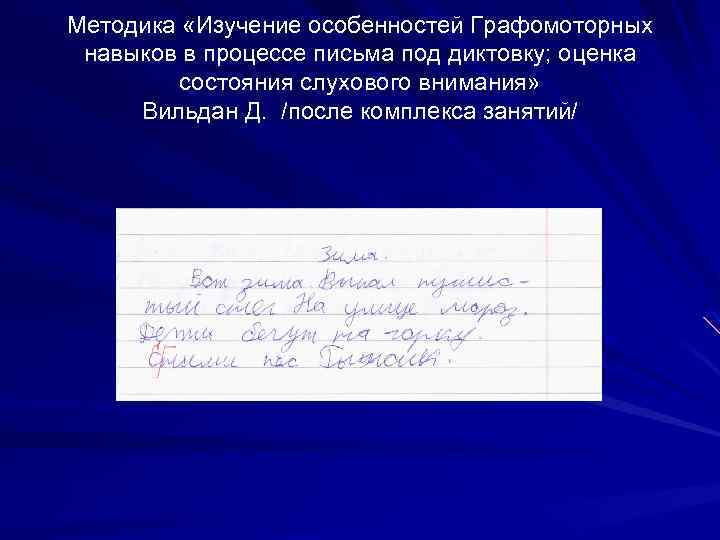 Методика «Изучение особенностей Графомоторных
навыков в процессе письма под диктовку; оценка
состояния слухового внимания»
Вильдан Д. /после комплекса занятий/
Зима.
Вот зима. Выпал пушис-
тый снег На улице мороз.
Дети бегут на горку.
пёс